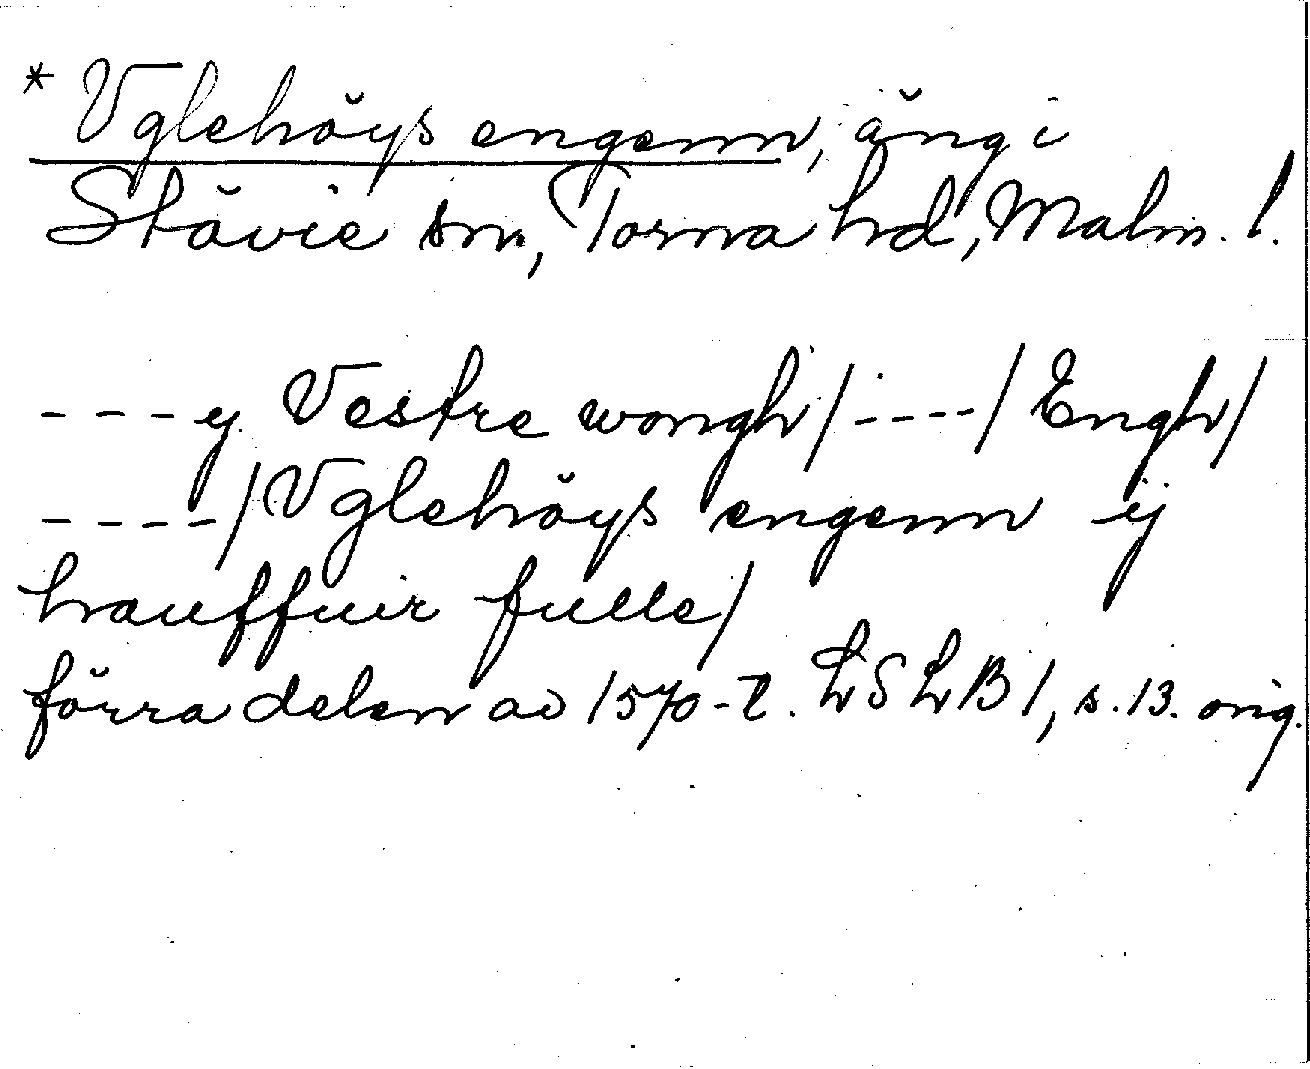 * Vglehöys engenn, äng i
Stävie sn, Torna hd, Malm. l.
- - - y Vestre wongh/----/Engh/
----/Vglehöys engenn ij
hauffuir fulle/
förra delen av 1570-t. LSLB 1, s. 13. orig.